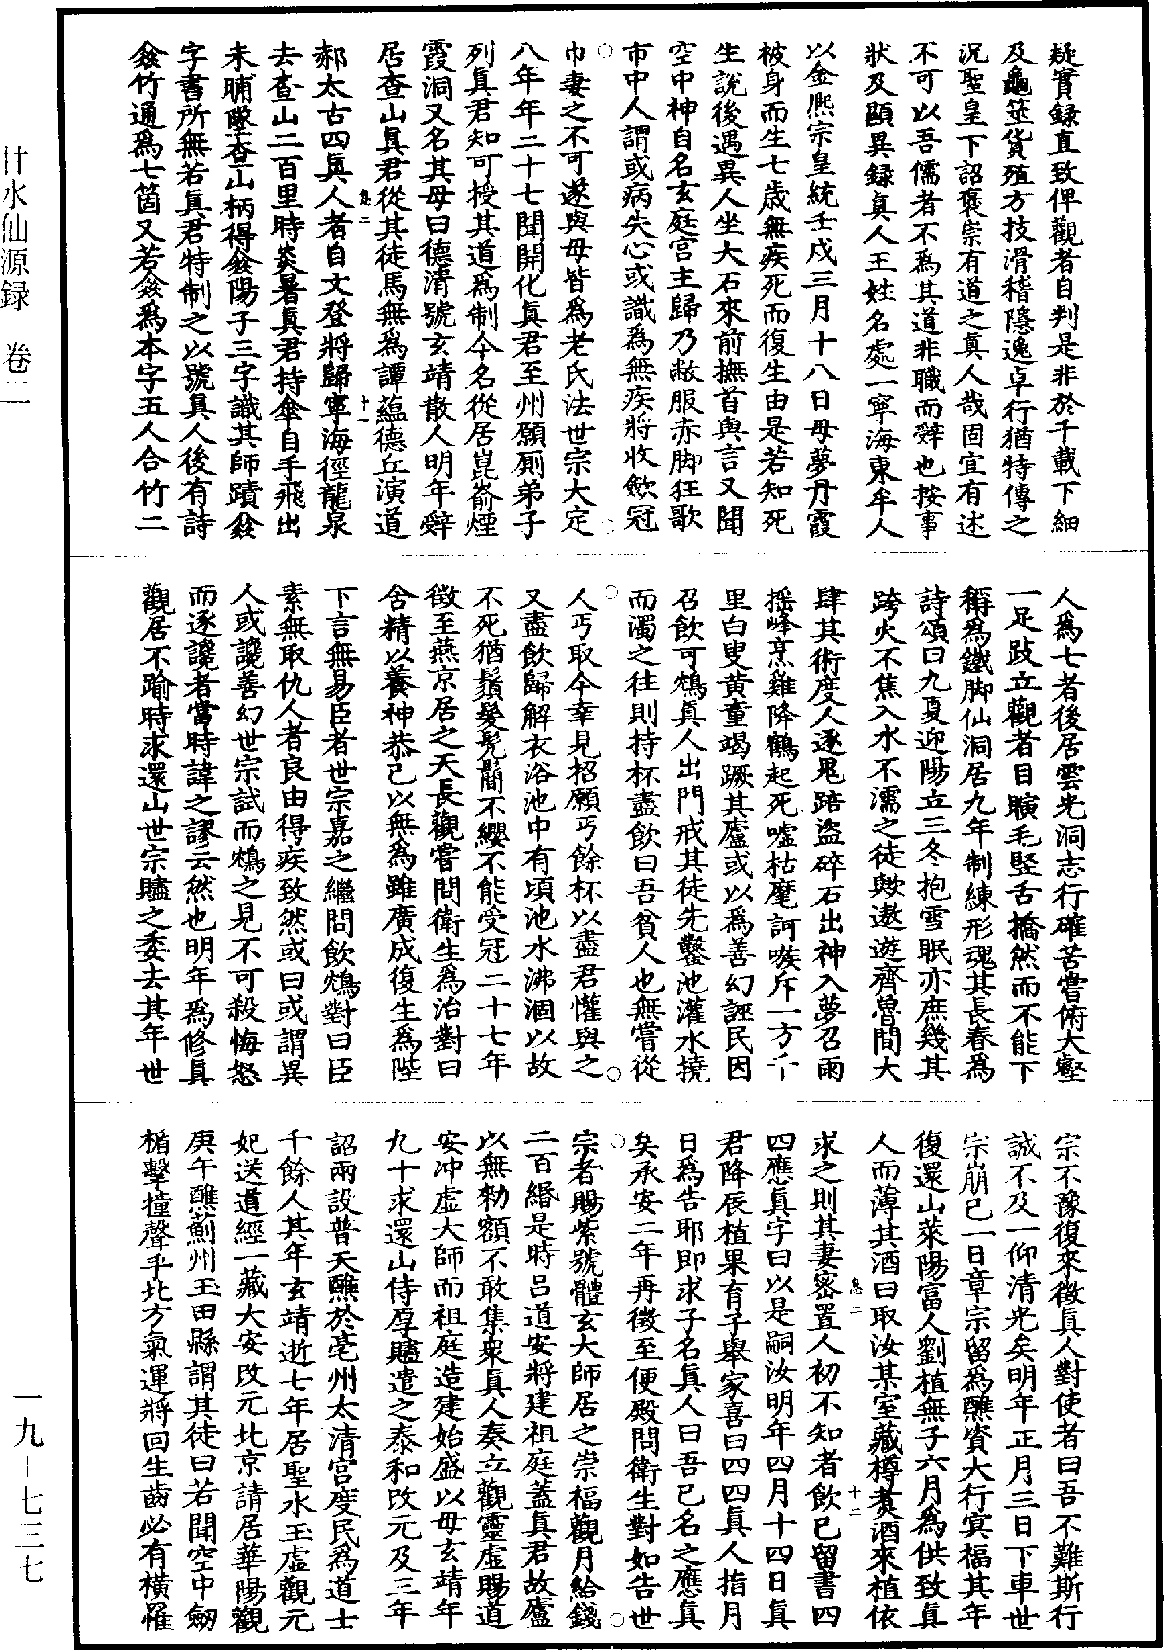 疑實録直致俾觀者自判是非於千載下細
及龜筮貨殖方技滑稽隱逸卓行猶特傳之
況聖皇下詔褒崇有道之真人哉固宜有述
不可以吾儒者不爲其道非職而辭也按事
狀及顯異録真人王姓名處一寧海東牟人
以金熙宗皇統壬戌三月十八日母夢丹霞
被身而生七歲無疾死而復生由是若知死
生說後遇異人坐大石來前撫首與言又聞
空中神自名玄庭宮主歸乃敝服赤脚狂歌
市中人謂或病失心或識爲無疾將收斂冠
巾妻之不可遂與母皆爲老氏法世宗大定
八年年二十七聞開化真君至州願厠弟子
列真君知可授其道爲制今名從居崑崳煙
霞洞又名其母曰德清號玄靖散人明年辭
居查山真君從其徒馬無爲譚蘊德丘演道
郝太古四真人者自文登將歸寧海徑龍泉
去查山二百里時炎暑真君持傘自手飛出
未晡墜查山柄得傘陽子三字識其師蹟傘
字書所無若真君特制之以號真人後有詩
傘竹通爲七箇又若傘爲本字五人合竹二
人爲七者後居雲光洞志行確苦嘗俯大壑
一足跂立觀者目瞚毛竪舌撟然而不能下
稱爲鐵脚仙洞居九年制練形魂其長春爲
詩頌曰九夏迎陽立三冬抱雪眠亦庶幾其
跨火不焦入水不濡之徒歟遨遊齊魯間大
肆其術度人逐鬼踣盜碎石出神入夢召雨
摇峰烹雞降鶴起死噓枯麾訶嗾斥一方千
里白叟黄童竭蹶其廬或以爲善幻誣民因
召飲可鴆真人出門戒其徒先鑿池灌水撓
而濁之往則持杯盡飲曰吾貧人也無嘗從
人丐取今幸見招願丐餘杯以盡君懽與之
又盡飲歸解衣浴池中有頃池水沸涸以故
不死猶鬚髮髡髴不纓不能受冠二十七年
徵至燕京居之天長觀嘗問衛生爲治對曰
含精以養神恭己以無爲雖廣成復生爲陛
下言無易臣者世宗嘉之繼問飲鴆對曰臣
素無取仇人者良由得疾致然或曰或謂異
人或讒善幻世宗試而鴆之見不可殺悔怒
而逐讒者當時諱之謬云然也明年爲修真
觀居不踰時求還山世宗贐之委去其年世
宗不豫復來徵真人對使者曰吾不難斯行
誠不及一仰清光矣明年正月三日下車世
宗崩已一日章宗留爲醮資大行冥福其年
復還山萊陽富人劉植無子六月爲供致真
人而薄其酒曰取汝某室藏樽煑酒來植依
求之則其妻密置人初不知者飲已留書四
四應真字曰以是嗣汝明年四月十四日真
君降辰植果育子舉家喜曰四四真人指月
日爲告耶即求子名真人曰吾已名之應真
矣承安二年再徵至便殿問衛生對如告世
宗者賜紫號體玄大師居之崇福觀月給錢
二百緡是時吕道安將建祖庭蓋真君故廬
以無勑額不敢集衆真人奏立觀靈虛賜道
安冲虛大師而祖庭造建始盛以母玄靖年
九十求還山侍厚贐遣之泰和改元及三年
詔兩設普天醮於亳州太清宮度民爲道士
千餘人其年玄靖逝七年居聖水玉虛觀元
妃送道經一藏大安改元北京請居華陽觀
庚午醮薊州玉田縣謂其徒曰若聞空中劒
楯擊撞聲乎北方氣運將回生齒必有横罹
甘水仙源録 卷二
一九—七三七